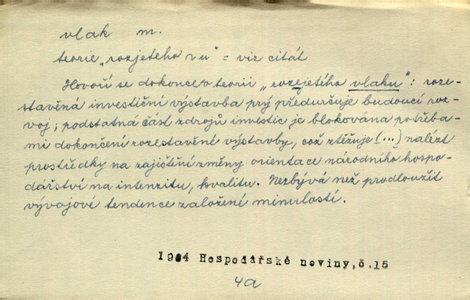 vlak m.
teorie „rozjetého v u" = viz citát
Hovoří se dokonce o teorii „rozejetého vlaku": roze-
stavěná investiční výstavba prý předurčuje budoucí roz-
voj; podstatná část zdrojů investic je blokována potřeba-
mi dokončení rozestavěné výstavby, což ztěžuje (...) nalézt
prostředky na zajištění změny orientace národního hospo-
dářství na intenzitu, kvalitu. Nezbývá než prodloužit
vývojové tendence založené minulostí.
1984 Hospodářské noviny, č.15
4a